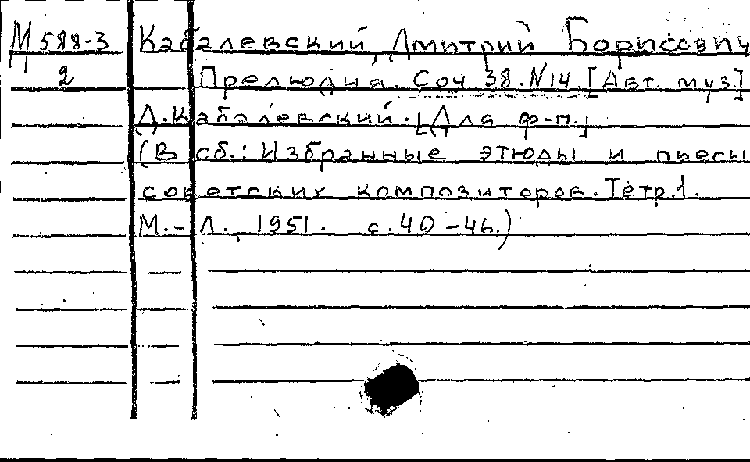 М 588-3 Кабалевский, Дмитрий Борисович
2 Прелюдия. Соч 38. N14. [Авт. муз.]
Д. Кабалевский. [Для ф-п.]
(В сб.: Избранные этюды и пьесы
советских композиторов. Тетр. 1.
М.-Л., 1951. с. 40-46.)